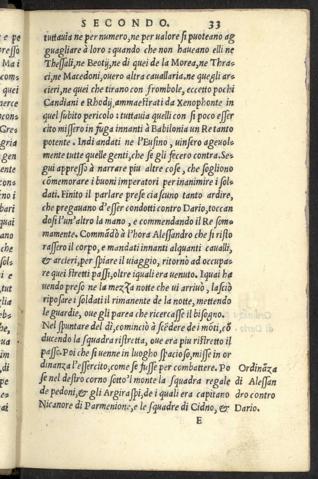 SECONDO. 33
tuttauia ne per numero, ne per ualore si puoteano ag
guagliare à loro: quando che non haueano elli ne
Thessali, ne Beotij, ne di quei de la Morea, ne Thra-
ci, ne Macedoni, ouero altra cauallaria, ne quegli ar-
cieri, ne quei che tirano con frombole, eccetto pochi
Candiani e Rhodij, ammaestrati da Xenophonte in
quel subito pericolo: tuttauia quelli con si poco esser
cito missero in fuga innanti à Babilonia un Re tanto
potente. Indi andati ne l'Eusino, uinsero ageuol-
mente tutte quelle genti, che se gli fecero contra. Se-
gui appresso à narrare piu altre cose, che sogliono
cōmemorare i buoni imperatori per inanimire i sol-
dati. Finito il parlare prese ciascuno tanto ardire,
che pregauano d'esser condotti contro Dario, toccan
dosi l'un'altro la mano, e commendando il Re som-
mamente. Commādò à l'hora Alessandro che si risto
rassero il corpo, e mandati innanti alquanti caualli,
& arcieri, per spiare il uiaggio, ritornò ad occupa-
re quei stretti passi, oltre iquali era uenuto. Iquai ha
uendo preso ne la mezza notte che ui arriuò, lasciò
riposare i soldati il rimanente de la notte, mettendo
le guardie, oue gli parea che ricercasse il bisogno.
Nel spuntare del dì, cominciò à scēdere dei mōti, cō
ducendo la squadra ristretta, oue era piu ristretto il
passo. Poi che si uenne in luogho spacioso, misse in or
dinanza l'essercito, come se fusse per combattere. Po
se nel destro corno sotto'l monte la squadra regale
de pedoni, & gli Argiraspi, de i quali era capitano
Nicanore di Parmenione, e le squadre di Cidno, &
E
Ordināza
di Alessan
dro contro
Dario.